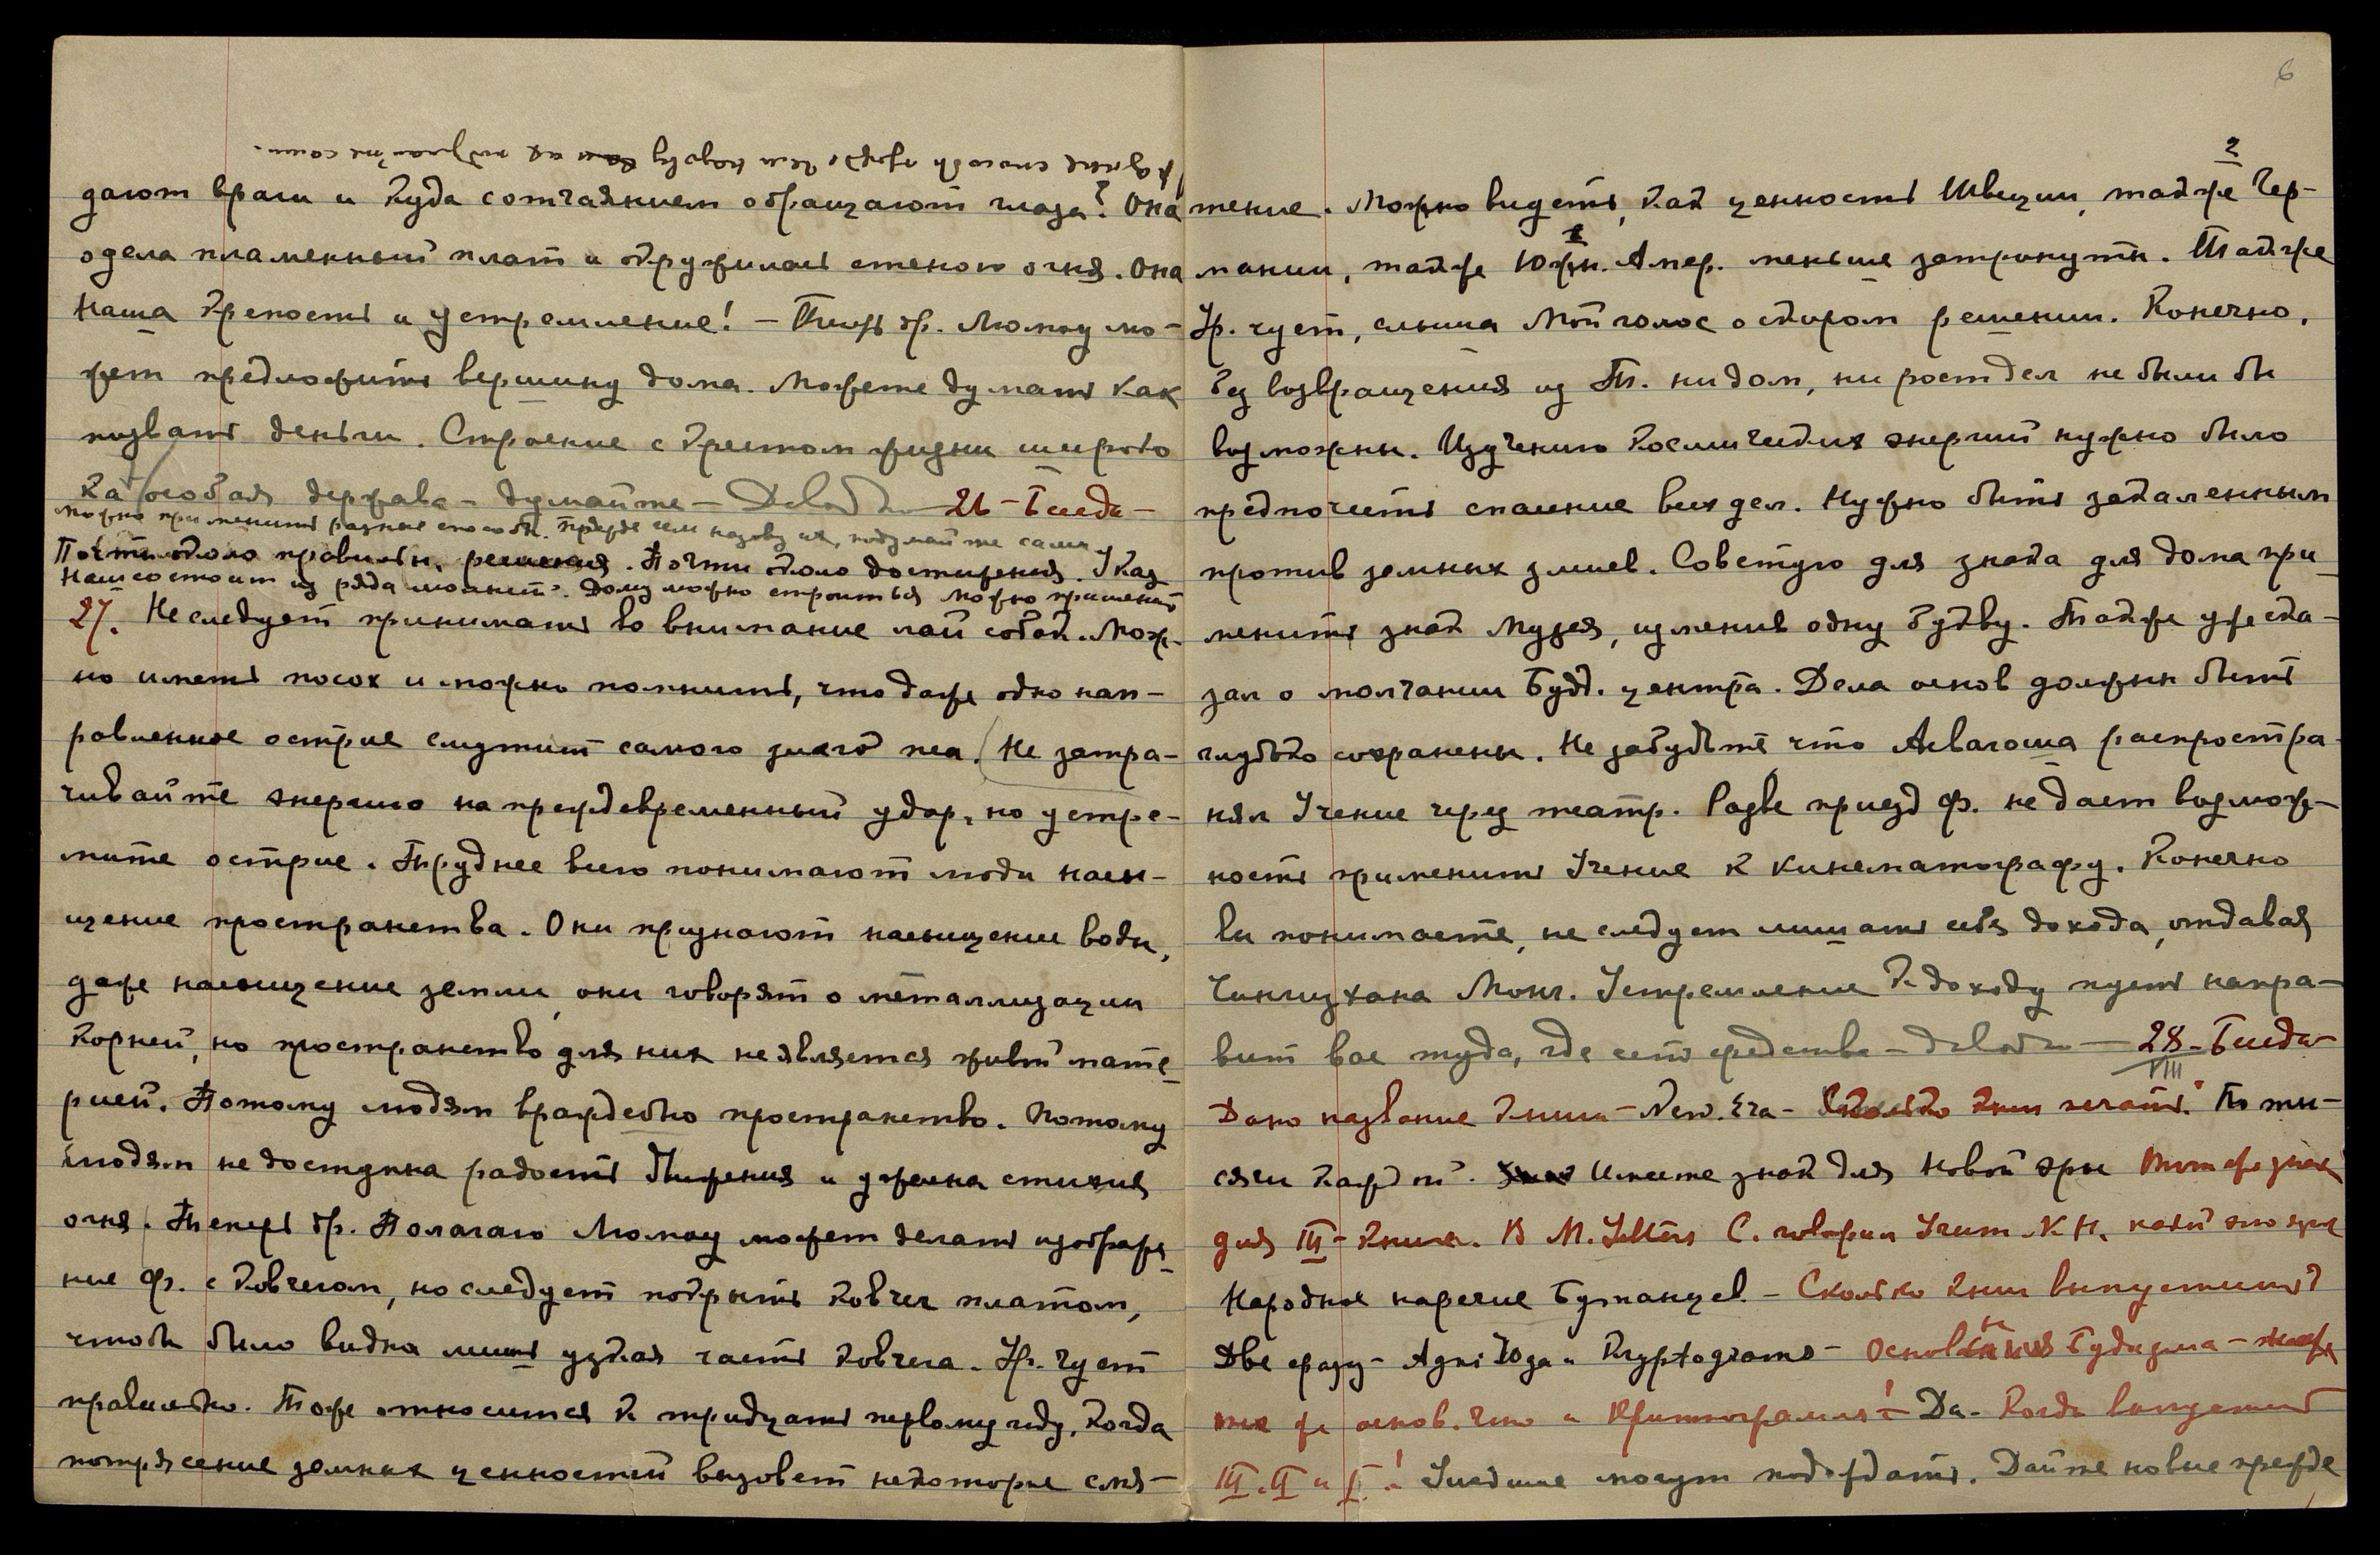 разные способы прежде чем назову их подумайте сами.
дают враги и куда с отчаянием обращают глаза? Она
одела пламенный плат и окружилась стеною огня. Она
Наша крепость и устремление! — Теперь др. Люмоу мо-
жет предложить вершину дома. Можете думать как
назвать деньги. Строение с крестом жизни широко
как особая держава — думайте — 26 — Беседа —
Можно применить разные способы. Прежде чем назову их, подумайте сами.
Почти около правильн. решения. Почти около достижения. Указ
Наш состоит из ряда молний. Дому можно строиться можно применить
27. Не следует принимать во внимание лай собак. Мож-
но иметь посох и можно помнить, что даже одно нап-
равленное острие смутит самого злого пса. (Не затра-
чивайте энергию на преждевременный удар, но устре-
мите острие. Труднее всего понимают люди насы-
щение пространства. Они признают насыщение воды,
даже насыщение земли, они говорят о металлизации
корней, но пространство для них не является живой мате-
рией. Потому людям враждебно пространство. Потому
людям не доступна радость Служения и ужасна стихия
огня. Теперь др. Полагаю Люмоу может делать изображе-
ние Ф. с Ковчегом, но следует покрыть ковчег платом,
чтобы было видна лишь узкая часть ковчега. Ур. Чует
правильно. Тоже относится к тридцать первому году, когда
потрясение земных ценностей вызовет некоторые смя-
6
2
тение. Можно видеть, как ценности Швеции, также Гер-
1
мании, также Южн. Амер. меньше затронуты. Также
Ур. чует, слыша Мой голос о скором решении. Конечно,
без возвращения из Т. ни дом, ни рост дел не были бы
возможны. Изучению космических энергий нужно было
предпочесть спасение всех дел. Нужно быть закаленным
против земных змиев. Советую для знака для дома при-
менить знак Музея, изменив одну букву. Также уже ска-
зал о молчании Будд. центра. Дела основ должны быть
глубоко сохранены. Не забудьте что Асвагоша распростра-
нял Учение через театр. Разве приезд Ф. не дает возмож-
ность применить Учение к кинематографу. Конечно
вы понимаете, не следует лишать себя дохода, отдавая
Чингизхана Монг. Устремление к доходу пусть напра-
вит вас туда, где есть средства — 28 — Беседа —
VIII
Дано название книги — New. Era — Сколько книг печатать? По ты-
сячи каждой. Имеете знак для Новой эры тот же знак
для III — книги. В M. Letters С. говорил Учит. К.Н. какой это язык
Народное наречие Бутанцев — Сколько книг выпустить?
Две сразу — Agni Юга и Kryptograms — Основы Буддизма — также
тех же основ. что и Криптограммы? — Да. Когда выпустить
III. II и I? Ушедшие могут подождать. Дайте новые прежде